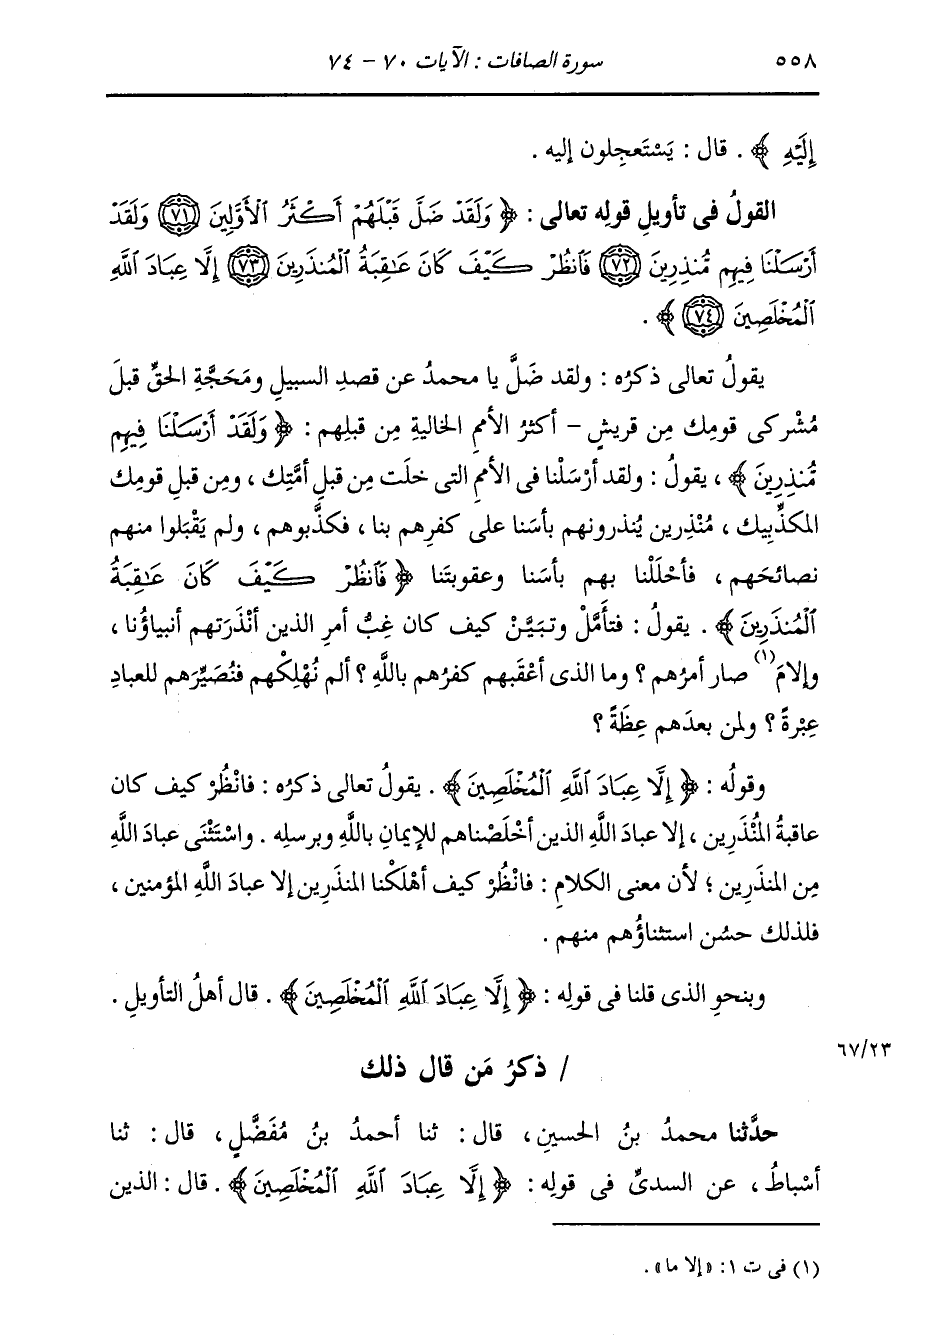 ٥٥٨ سورة الصافات : الآيات ٧٠ - ٧٤
إِلَيْهِ ﴾ . قال : يَسْتَعجِلون إليه .
القولُ فى تأويلِ قوله تعالى : ﴿ وَلَقَدْ ضَلَّ قَبْلَهُمْ أَكْثَرُ ٱلْأَوَّلِينَ ٧١ وَلَقَدْ
أَرْسَلْنَا فِيهِم مُّنذِرِينَ ٧٢ فَٱنظُرْ كَيْفَ كَانَ عَٰقِبَةُ ٱلْمُنذَرِينَ ٧٣ إِلَّا عِبَادَ ٱللَّهِ
ٱلْمُخْلَصِينَ ٧٤ ﴾ .
يقولُ تعالى ذكرُه : ولقد ضَلَّ يا محمدُ عن قصدِ السبيلِ ومَحَجَّةِ الحقِّ قبلَ
مُشْركى قومِك مِن قريشٍ - أكثرُ الأممِ الخاليةِ مِن قبلِهم : ﴿ وَلَقَدْ أَرْسَلْنَا فِيهِم
مُّنذِرِينَ ﴾ ، يقولُ : ولقد أرْسَلْنا فى الأممِ التى خلَت مِن قبلِ أمَّتِك ، ومِن قبلِ قومِك
المكذِّبيك ، مُنْذِرين يُنذرونهم بأسَنا على كفرِهم بنا ، فكذَّبوهم ، ولم يَقْبَلوا منهم
نصائحَهم ، فأحْلَلْنا بهم بأسَنا وعقوبتَنا ﴿ فَٱنظُرْ كَيْفَ كَانَ عَٰقِبَةُ
ٱلْمُنذَرِينَ ﴾ . يقولُ : فتأَمَّلْ وتبَيَّنْ كيف كان غِبُّ أمرِ الذين أنْذَرَتهم أنبياؤُنا ،
وإلامَ(١) صار أمرُهم ؟ وما الذى أعْقَبهم كفرُهم باللَّهِ ؟ ألم نُهْلِكْهم فنُصَيِّرَهم للعبادِ
عِبْرةً ؟ ولمن بعدَهم عِظَةً ؟
وقولُه : ﴿ إِلَّا عِبَادَ ٱللَّهِ ٱلْمُخْلَصِينَ ﴾ . يقولُ تعالى ذكرُه : فانْظُرْ كيف كان
عاقبةُ المُنْذَرِين ، إلا عبادَ اللَّهِ الذين أخْلَصْناهم للإيمانِ باللَّهِ وبرسلِه . واسْتَثْنَى عبادَ اللَّهِ
مِن المنذَرين ؛ لأن معنى الكلامِ : فانْظُرْ كيف أهْلَكْنا المنذَرين إلا عبادَ اللَّهِ المؤمنين ،
فلذلك حسُن استثناؤُهم منهم .
وبنحوِ الذى قلنا فى قولِه : ﴿ إِلَّا عِبَادَ ٱللَّهِ ٱلْمُخْلَصِينَ ﴾ . قال أهلُ التأويلِ .
٦٧/٢٣
/ ذكرُ مَن قال ذلك
حدَّثنا محمدُ بنُ الحسينِ ، قال : ثنا أحمدُ بنُ مُفَضَّلٍ ، قال : ثنا
أسْباطُ ، عن السدىِّ فى قولِه : ﴿ إِلَّا عِبَادَ ٱللَّهِ ٱلْمُخْلَصِينَ ﴾ . قال : الذين
(١) فى ت ١: «إلا ما» .